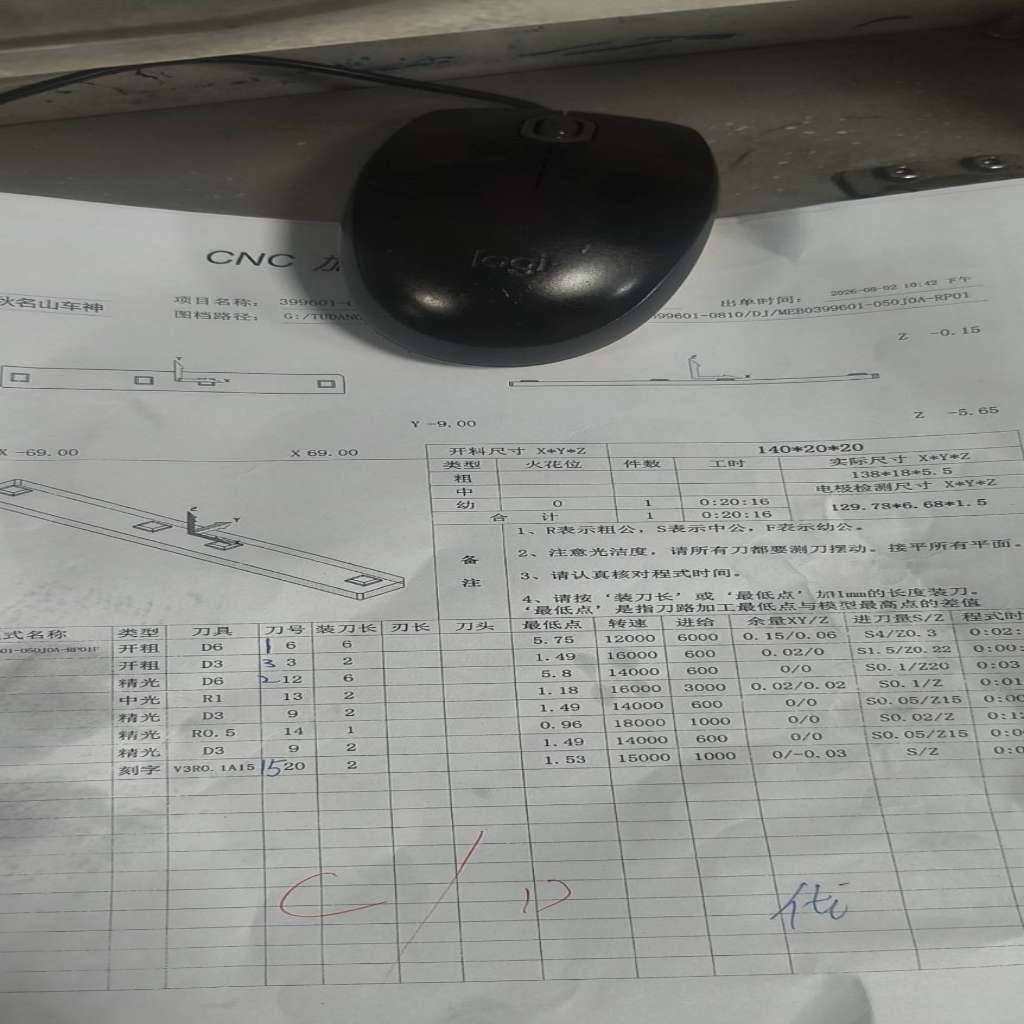 logi
CNC 加
秋名山车神
项目名称： 399601-
出单时间： 2026-08-02 10:42 下午
图档路径： G:/TUDANG
399601-0810/DJ/MEB0399601-050J0A-RP01
Z -0.15
Y -9.00
Z -5.65
X -69.00
X 69.00
开料尺寸 X*Y*Z 140*20*20
类型 火花位 件数 工时 实际尺寸 X*Y*Z
粗 138*18*5.5
中 电极检测尺寸 X*Y*Z
幼 0 1 0:20:16 129.78*6.68*1.5
合 计 1 0:20:16
备注
1、R表示粗公，S表示中公，F表示幼公。
2、注意光洁度，请所有刀都要测刀摆动。接平所有平面。
3、请认真核对程式时间。
4、请按‘装刀长’或‘最低点’加1mm的长度装刀。
‘最低点’是指刀路加工最低点与模型最高点的差值
式名称 类型 刀具 刀号 装刀长 刃长 刀头 最低点 转速 进给 余量XY/Z 进刀量S/Z 程式时
01-050J0A-RP01F 开粗 D6 1 6 6 5.75 12000 6000 0.15/0.06 S4/Z0.3 0:02:
开粗 D3 3 3 2 1.49 16000 600 0.02/0 S1.5/Z0.22 0:00:
精光 D6 2 12 6 5.8 14000 600 0/0 S0.1/Z20 0:03
中光 R1 13 2 1.18 16000 3000 0.02/0.02 S0.1/Z 0:01
精光 D3 9 2 1.49 14000 600 0/0 S0.05/Z15 0:00
精光 R0.5 14 1 0.96 18000 1000 0/0 S0.02/Z 0:1
精光 D3 9 2 1.49 14000 600 0/0 S0.05/Z15 0:0
刻字 V3R0.1A15 15 20 2 1.53 15000 1000 0/-0.03 S/Z 0:0